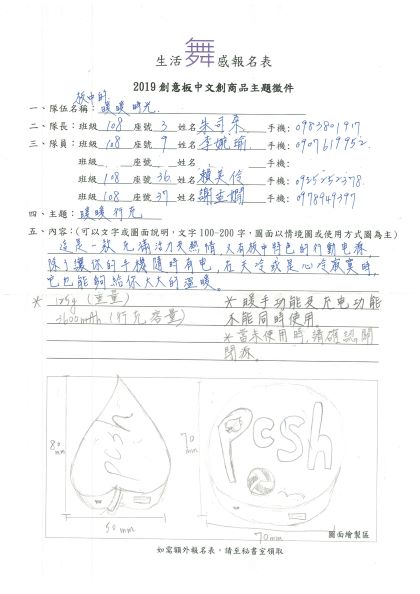 生活 舞 感報名表
2019創意板中文創商品主題徵件
一、隊伍名稱：板中的暖暖時光
二、隊長：班級 108 座號 3 姓名 朱司采 手機：0983801917
三、隊員：班級 108 座號 9 姓名 李婉瑜 手機：0907619952
班級 108 座號 36 姓名 賴英伶 手機：0925252378
班級 108 座號 37 姓名 謝圭嫻 手機：0978949397
四、主題：暖暖行充
五、內容：(可以文字或圖面說明，文字100-200字，圖面以情境圖或使用方式圖為主)
這是一款充滿活力又熱情，又有板中特色的行動電源，
除了讓你的手機隨時有電，在天冷或是心冷寂寞時，
它也能夠給你大大的溫暖。
＊ 125g (重量) ＊暖手功能及充電功能
3600mAh (行充容量) 不能同時使用。
＊當未使用時，請確認關
閉源。
80mm
pcsh
50mm
70mm
pcsh
70mm
圖面繪製區
如需額外報名表，請至秘書室領取